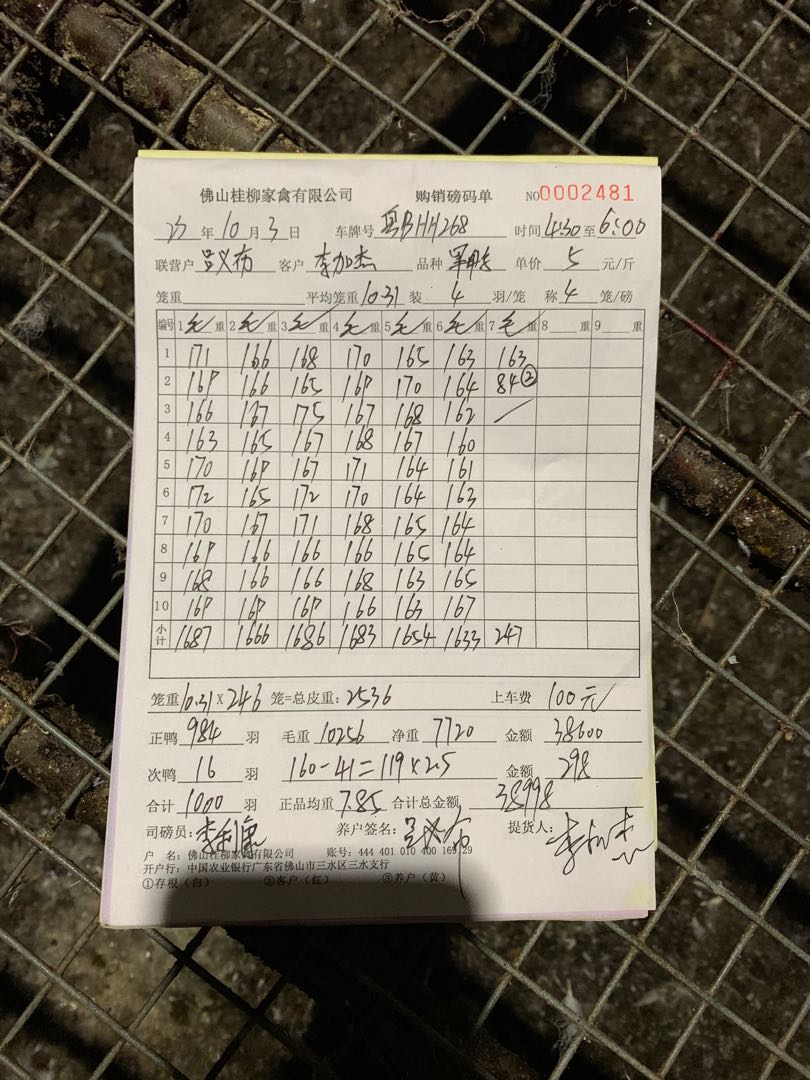 佛山桂柳家禽有限公司 购销磅码单 NO0002481
23年10月3日 车牌号 粤BHH268 时间4:30至6:00
联营户 吕义布 客户 李加杰 品种 单价 5 元/斤
笼重 平均笼重10.31 装 4 羽/笼 称 4 笼/磅
编号 1毛重 2毛重 3毛重 4毛重 5毛重 6毛重 7毛重 8 重 9 重
1 171 166 168 170 165 163 163
2 169 166 165 169 170 164 84②
3 166 167 175 167 168 162 /
4 163 165 167 168 167 160
5 170 169 167 171 164 161
6 172 165 172 170 164 163
7 170 167 171 168 165 164
8 169 166 166 166 165 164
9 168 166 166 168 163 165
10 169 169 169 166 163 167
小计 1687 1666 1686 1683 1654 1633 247
笼重10.31×246 笼=总皮重:2536 上车费 100元
正鸭 984 羽 毛重 10256 净重 7720 金额 38600
次鸭 16 羽 160-41=119×2.5 金额 298
合计 1000 羽 正品均重 7.85 合计总金额 38998
司磅员: 养户签名: 吕义布 提货人:
户 名: 佛山桂柳家禽有限公司 账号: 444 401 010 400 169 29
开户行: 中国农业银行广东省佛山市三水区三水支行
①存根(白) ②客户(红) ③养户(黄)